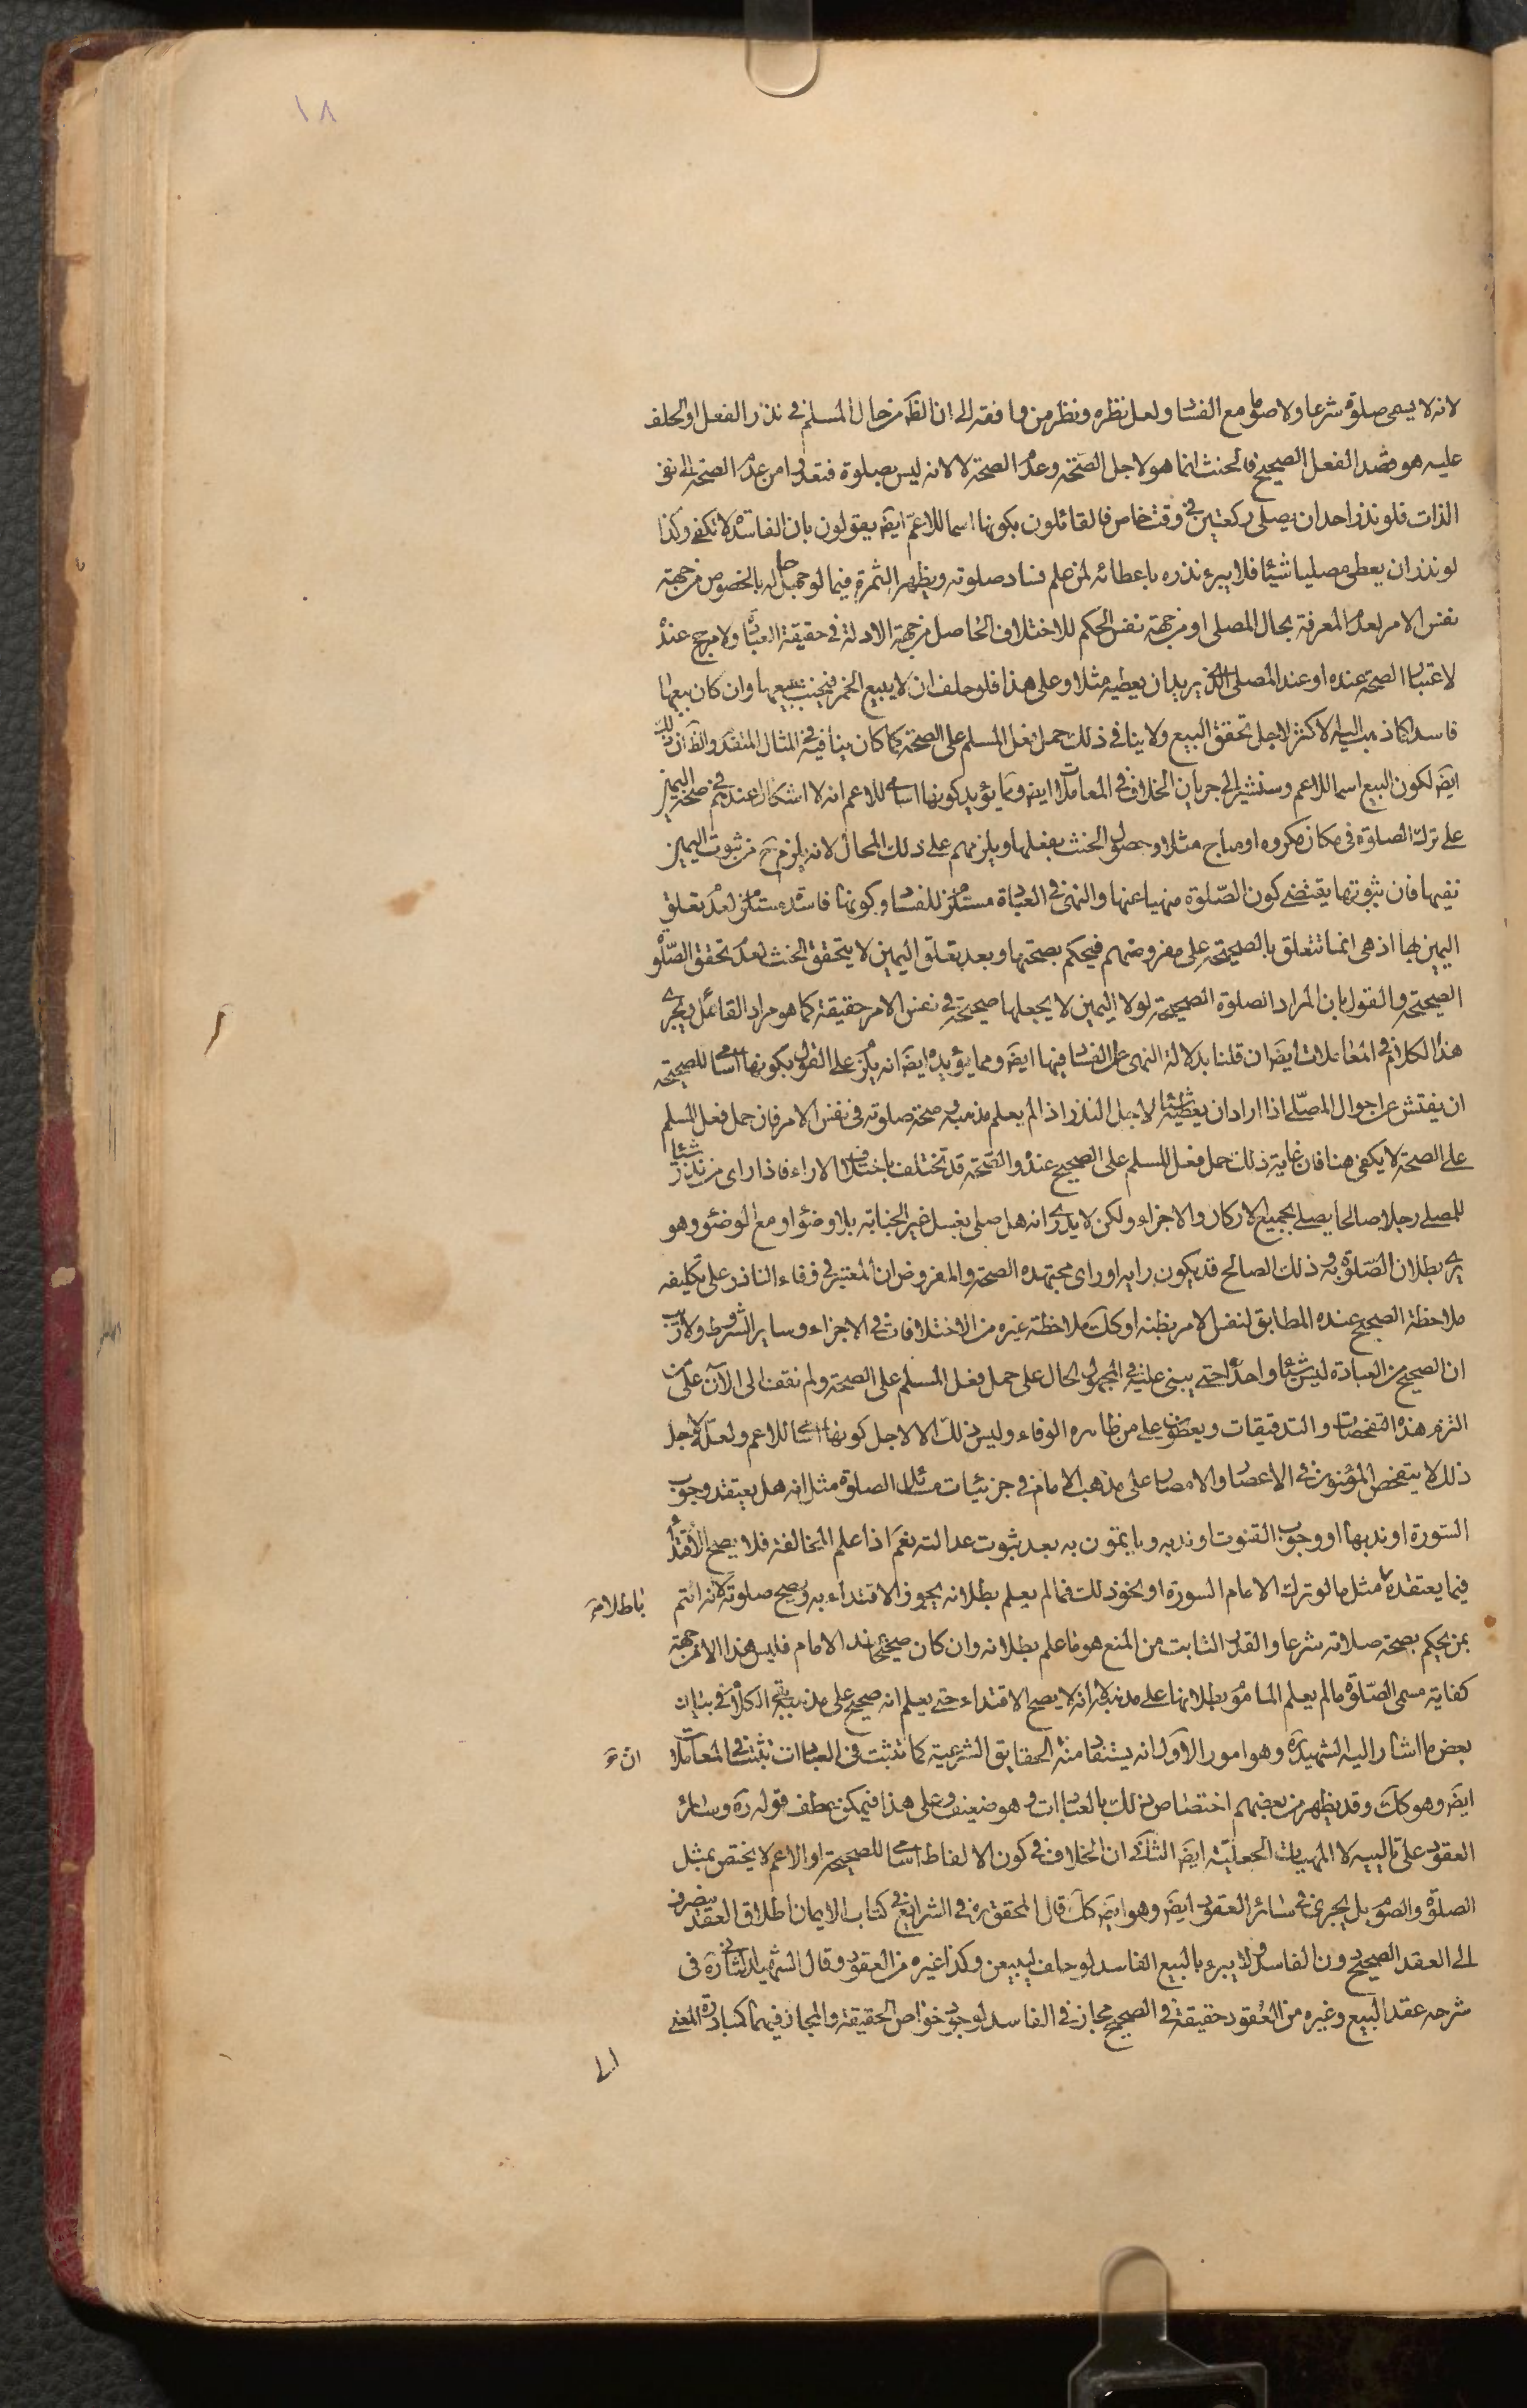 ١٨
لانه لا يسمى صلوة شرعا ولا صوما مع الفساد ولعل نظره ونظر من وافقه الى ان الظ من حال المسلم في نذر الفعل او الحلف
عليه هو قصد الفعل الصحيح فالحنث انما هو لاجل الصحة وعدم الصحة لا لانه ليس بصلوة فتعدوا من عدم الصحة الى نفي
الذات فلو نذر احد ان يصلى ركعتين في وقت خاص فالقائلون بكونها اسما للاعم ايض يقولون بان الفاسدة لا تكفى وكذا
لو نذر ان يعطى مصليا شيئا فلا يبرء نذره باعطائه لمن علم فساد صلوته ويظهر الثمرة فيما لو جهل حاله بالخصوص من جهة
نفس الامر لعدم المعرفة بحال المصلى او من جهة نفس الحكم للاختلاف الحاصل من جهة الادلة في حقيقة العبادة ولا مرجح عنده
لاعتبار الصحة عنده او عند المصلى الذي يريد ان يعطيه مثلا وعلى هذا فلو حلف ان لا يبيع الخمر فيحنث ببيعها وان كان بيعها
فاسدا كما ذهب اليه الاكثر لاجل تحقق البيع ولا ينافي ذلك حمل فعل المسلم على الصحة كما كان ينافيه في المثال المتقدم والظ ان ذلك
ايض لكون البيع اسما للاعم وسنشير الى جريان الخلاف في المعاملات ايض ومما يؤيد كونها اسامي للاعم انه لا اشكال عندهم في صحة اليمين
على ترك الصلوة في مكان مكروه او مباح مثلا وحصول الحنث بفعلها ويلزمهم على ذلك المحال لانه يلزم ح من ثبوت اليمين
نفيها فان ثبوتها يقتضى كون الصلوة منهيا عنها والنهى في العبادة مستلزم للفساد وكونها فاسدة مستلزم لعدم تعلق
اليمين بها اذ هى انما تتعلق بالصحيحة على مفروضهم فيحكم بصحتها وبعد تعلق اليمين لا يتحقق الحنث لعدم تحقق الصلوة
الصحيحة والقول بان المراد الصلوة الصحيحة لولا اليمين لا يجعلها صحيحة في نفس الامر حقيقة كما هو مراد القائل ويجرى
هذا الكلام في المعاملات ايض ان قلنا بدلالة النهى على الفساد فيها ايض ومما يؤيده ايض انه يلزم على القول بكونها اسامي للصحيحة
ان يفتش عن احوال المصلى اذا اراد ان يعطيه شيئا لاجل النذر اذا لم يعلم مذهبه وصحة صلوته في نفس الامر فان حمل فعل المسلم
على الصحة لا يكفى هنا فان غاية ذلك حمل فعل المسلم على الصحيح عنده والصحة قد تختلف باختلاف الاراء فاذا راى من نذر شيئا
للمصلى رجلا صالحا يصلى بجميع الاركان والاجزاء ولكن لا يدرى انه هل صلى بغسل غير الجنابة بلا وضوء او مع الوضوء وهو
يرى بطلان الصلوة به وذلك الصالح قد يكون رايه او راى مجتهده الصحة والمفروض ان المعتبر في وفاء الناذر على تكليفه
ملاحظة الصحيح عنده المطابق لنفس الامر بظنه او كك ملاحظة غيره من الاختلافات في الاجزاء وساير الشروط ولا ريب
ان الصحيح من العبادة ليس شيئا واحدا حتى يبنى عليه في المجهول الحال على حمل فعل المسلم على الصحة ولم نقف الى الآن على من
التزم هذه التفحصات والتدقيقات ويعطون على من ظاهره الوفاء وليس ذلك الا لاجل كونها اسامي للاعم ولعله لاجل
ذلك لا يتفحص المؤمنون في الاعصار والامصار على مذهب الامام في جزئيات مسائل الصلوة مثل انه هل يعتقد وجوب
السورة او ندبها او وجوب القنوت او ندبه ويأتمون به بعد ثبوت عدالته نعم اذا علم المخالفة فلا يصح الاقتداء
فيما يعتقده باطلا منه مثل ما لو ترك الامام السورة او نحو ذلك فما لم يعلم بطلانه يجوز الاقتداء به ويصح صلوته لانه ائتم
بمن يحكم بصحة صلاته شرعا والقدر الثابت من المنع هو ما علم بطلانه وان كان صحيحا عند الامام فليس هذا الا من جهة
كفاية مسمى الصلوة ما لم يعلم المأموم بطلانها على مذهبه لا انه لا يصح الاقتداء حتى يعلم انه صحيح على مذهبه بقى الكلام في بيان
بعض ما اشار اليه الشهيد ره وهو امور الاول انه يستفاد منه ان الحقايق الشرعية كما تثبت في العبادات تثبت في المعاملات
ايض وهو كك وقد يظهر من بعضهم اختصاص ذلك بالعبادات وهو ضعيف وعلى هذا فيمكن عطف قوله ره وسائر
العقود على تاليه لا المهيات الجعلية ايض الثاني ان الخلاف في كون الالفاظ اسامي للصحيحة او الاعم لا يختص بمثل
الصلوة والصوم بل يجرى في سائر العقود ايض وهو ايض كك قال المحقق ره في الشرايع في كتاب الايمان اطلاق العقد ينصرف
الى العقد الصحيح دون الفاسد ولا يبرء بالبيع الفاسد لو حلف ليبيعن وكذا غيره من العقود وقال الشهيد الثاني ره في
شرحه عقد البيع وغيره من العقود حقيقة في الصحيح مجاز في الفاسد لوجود خواص الحقيقة والمجاز فيهما كمبادرة المعنى